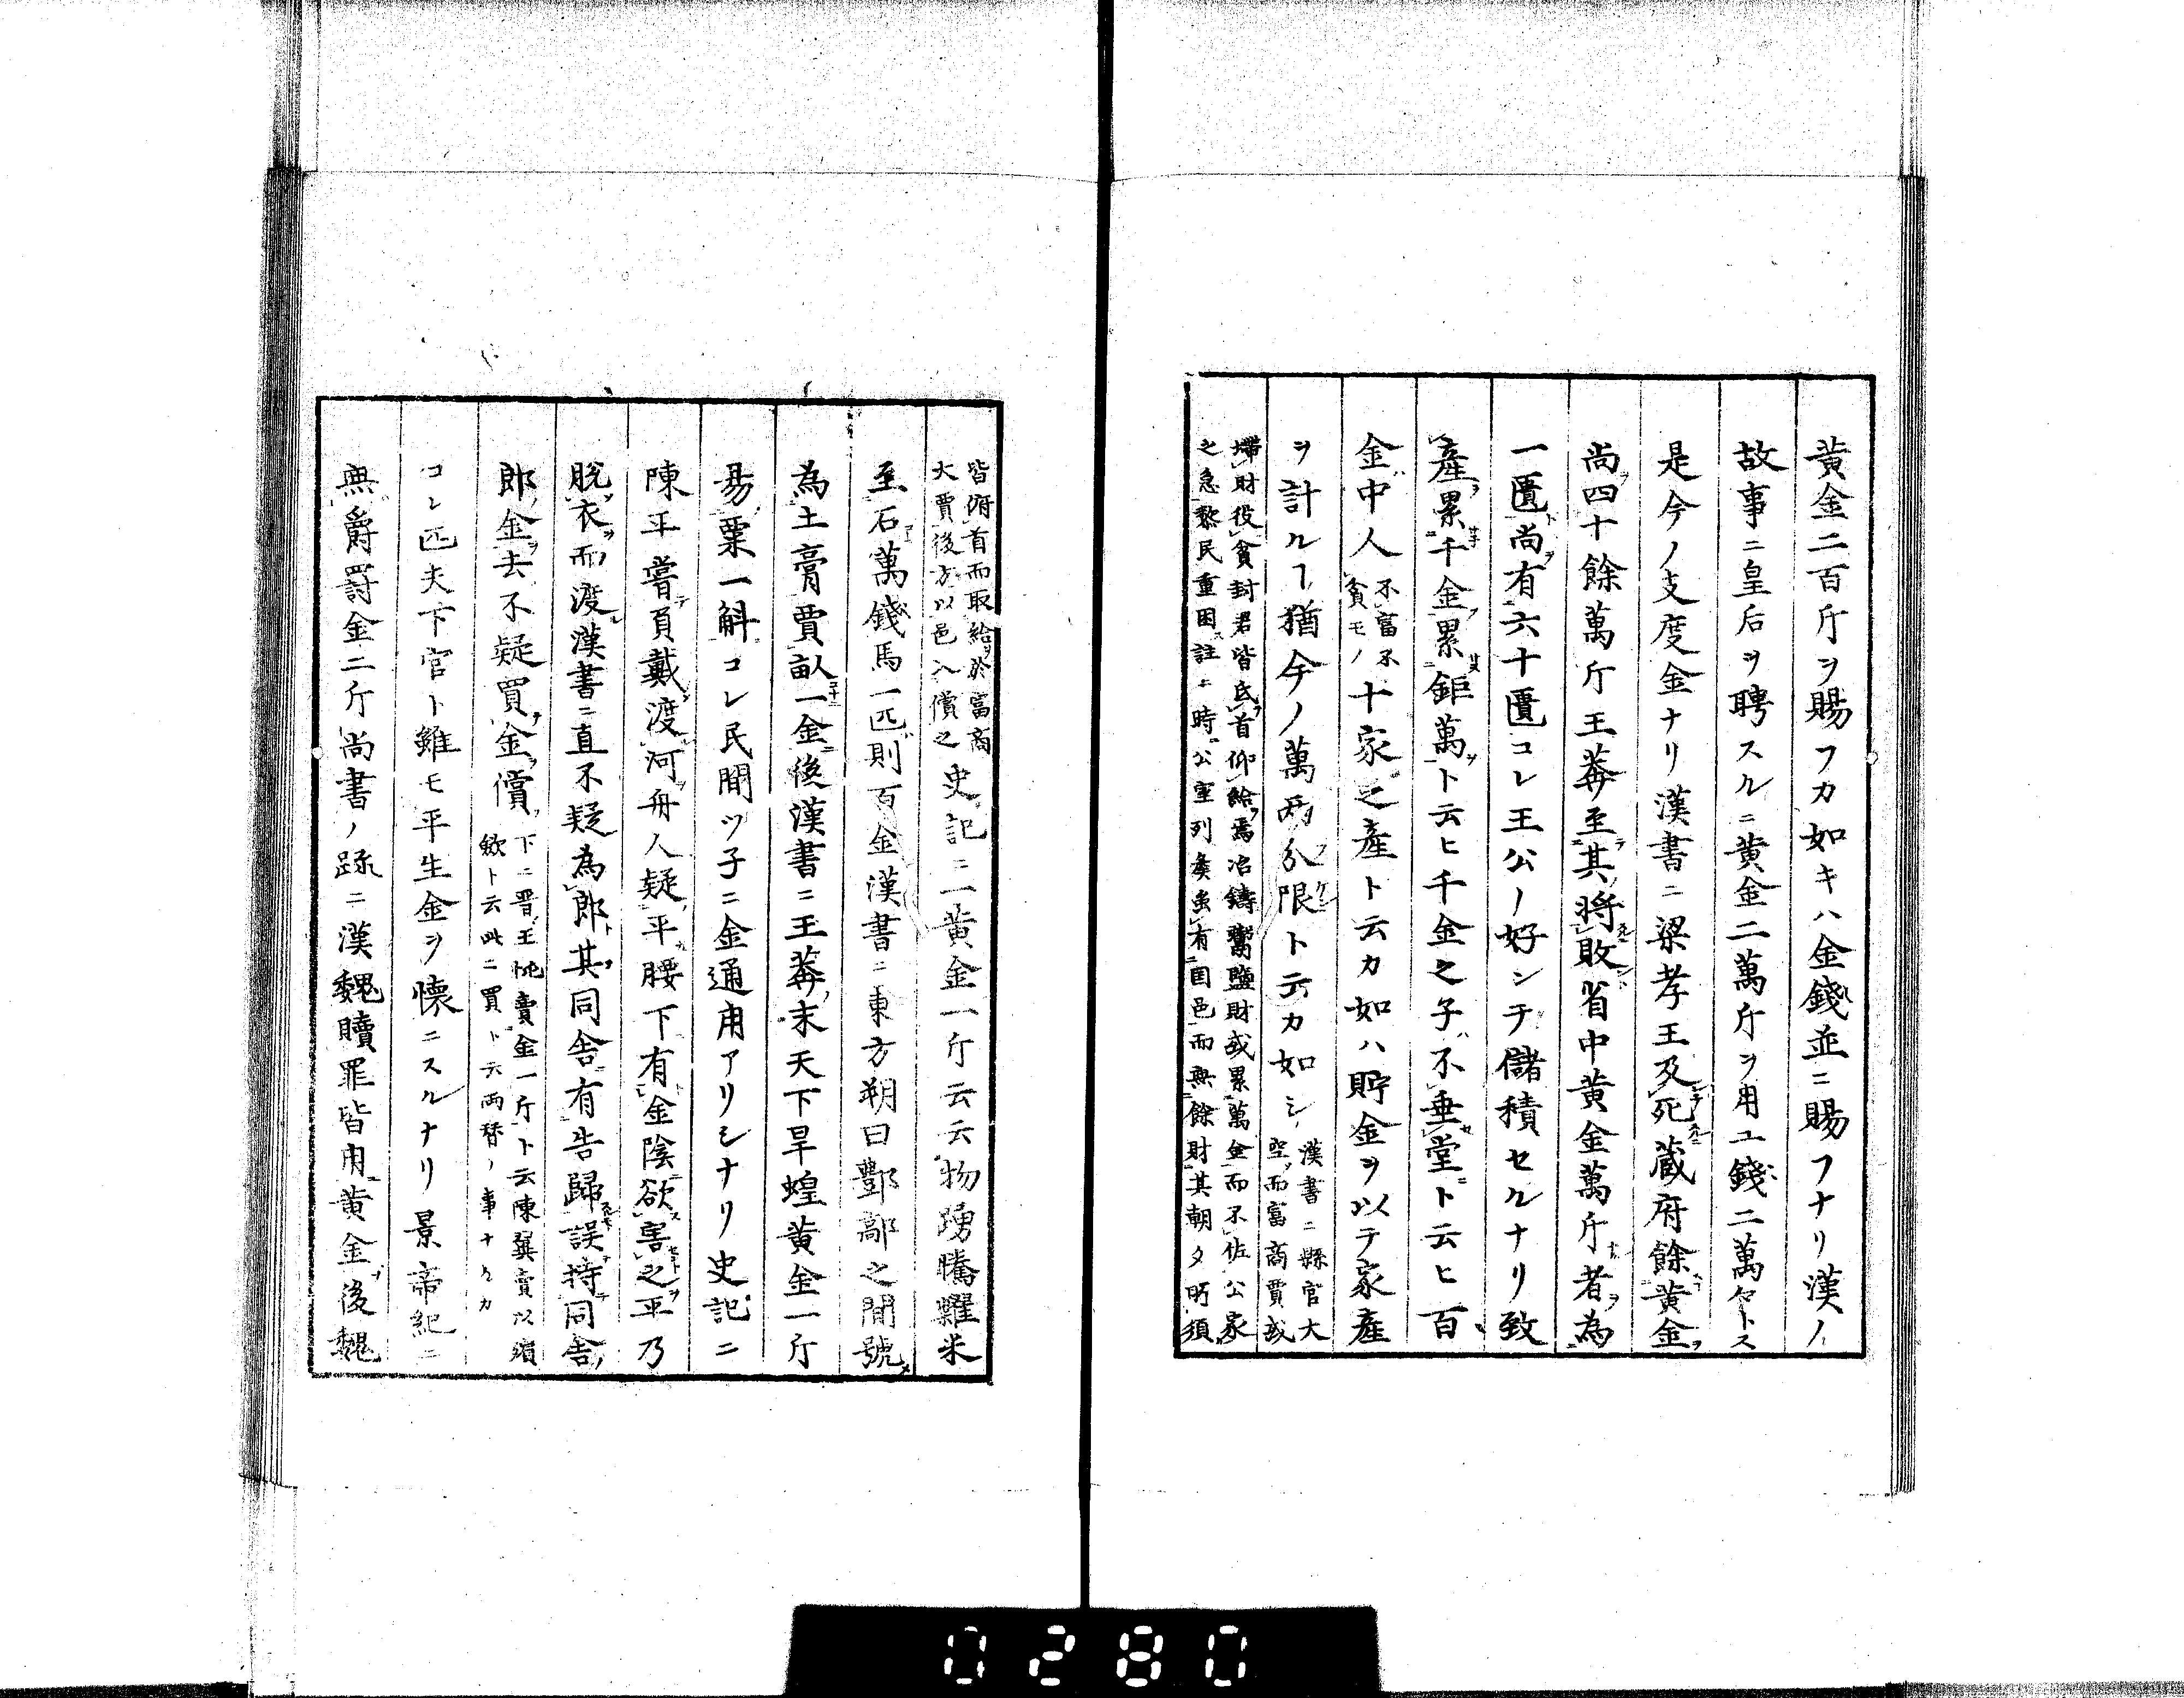 黄金二百斤ヲ賜フカ如キハ金錢並ニ賜フナリ漢ノ
故事ニ皇后ヲ聘スルニ黄金二萬斤ヲ用ユ錢二萬
是今ノ支度金ナリ漢書ニ梁孝王及死藏府餘黄金
尚四十餘萬斤王莽至其將敗省中黄金萬斤者為
一匱尚有六十匱コレ王公ノ好ンテ儲積セルナリ致
產累千金累鉅萬ト云ヒ千金之子不垂堂ト云ヒ百
金中人不富不貧モノ十家之產ト云カ如ハ貯金ヲ以テ家產
ヲ計ルヿ猶今ノ萬兩分限ト云カ如シ漢書ニ縣官大空而富商賈或
𡏖財役貧封君皆氐首仰給焉冶鑄鬻鹽財或累萬金而不佐公家
之急黎民重困註ニ時公室列矦虽有国邑而無餘財其朝夕所須
皆俯首而取給於富商大賈後方以邑入償之史記ニ一黄金一斤云云物踴騰糶米
至石萬錢馬一匹則百金漢書ニ東方朔曰酆鄗之間號
為土膏賈畝一金後漢書ニ王莽末天下旱蝗黄金一斤
易粟一斛コレ民間ツ子ニ金通用アリシナリ史記ニ
陳平嘗頁戴渡河舟人疑平腰下有金陰欲害之平乃
脱衣而渡漢書ニ直不疑為郎其同舎有告歸誤持同舎
郎金去不疑買金償下ニ晋王恍賣金一斤ト云陳巽賣以殯歛ト云此ニ買ト云両替ノ事ナルカ
コレ匹夫下官ト雖モ平生金ヲ懐ニスルナリ景帝紀ニ
無爵罸金二斤尚書ノ疏ニ漢魏贖罪皆用黄金後魏
0280